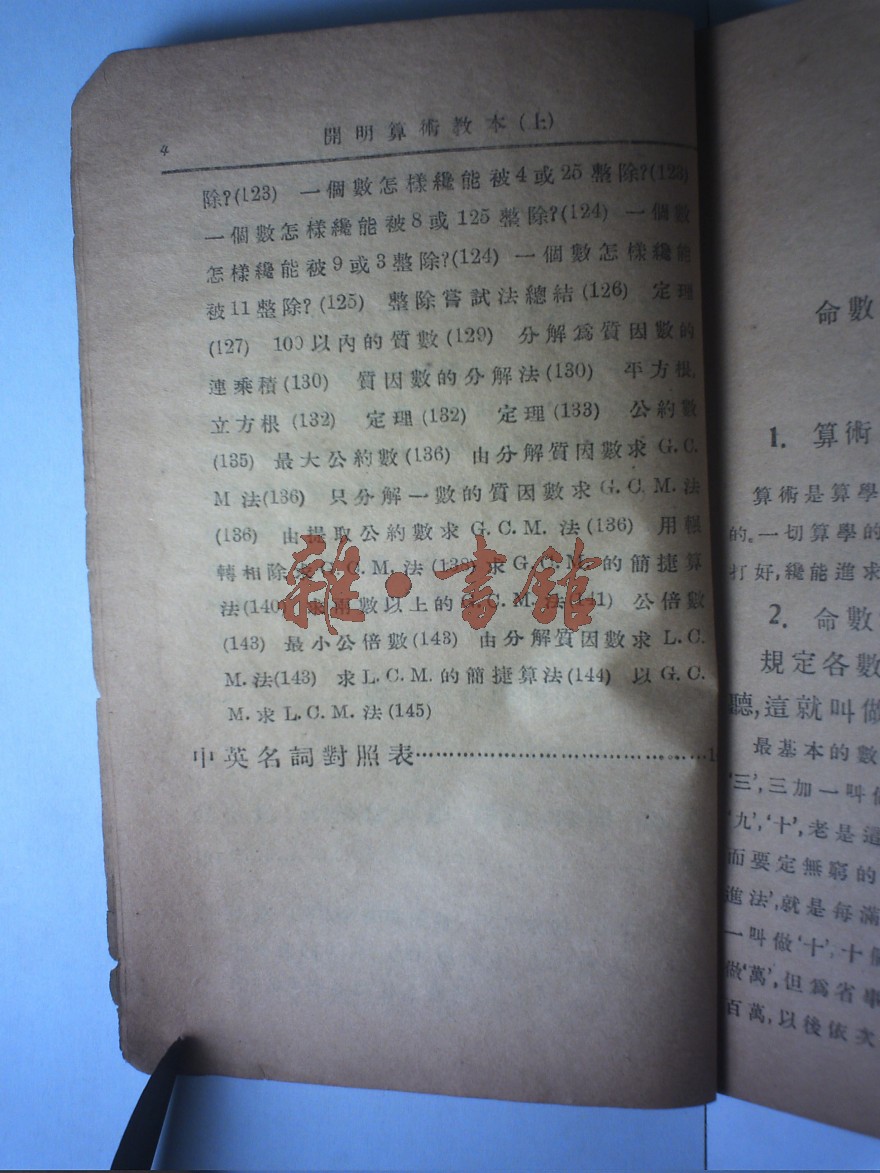 4
開明算術教本(上)
除?(123) 一個數怎樣纔能被4或25整除?(123)
一個數怎樣纔能被8或125整除?(124) 一個數
怎樣纔能被9或3整除?(124) 一個數怎樣纔能
被11整除?(125) 整除嘗試法總結(126) 定理
(127) 100以內的質數(129) 分解爲質因數的
連乘積(130) 質因數的分解法(130) 平方根,
立方根(132) 定理(132) 定理(133) 公約數
(135) 最大公約數(136) 由分解質因數求G.C.
M法(136) 只分解一數的質因數求G.C.M.法
(136) 由提取公約數求G.C.M.法(136) 用輾
轉相除求G.C.M.法(138) 求G.C.M.的簡捷算
法(140) 求兩數以上的G.C.M.法(141) 公倍數
(143) 最小公倍數(143) 由分解質因數求L.C.
M.法(143) 求L.C.M.的簡捷算法(144) 以G.C.
M.求L.C.M.法(145)
中英名詞對照表
雜·書館
命數
1. 算術
算術是算學
的。一切算學的
打好,纔能進求
2. 命數
規定各數
聽,這就叫做
最基本的數
'三',三加一叫做
'九','十',老是這
而要定無窮的
進法',就是每滿
一叫做'十',十個
做'萬',但爲省事
百萬,以後依次